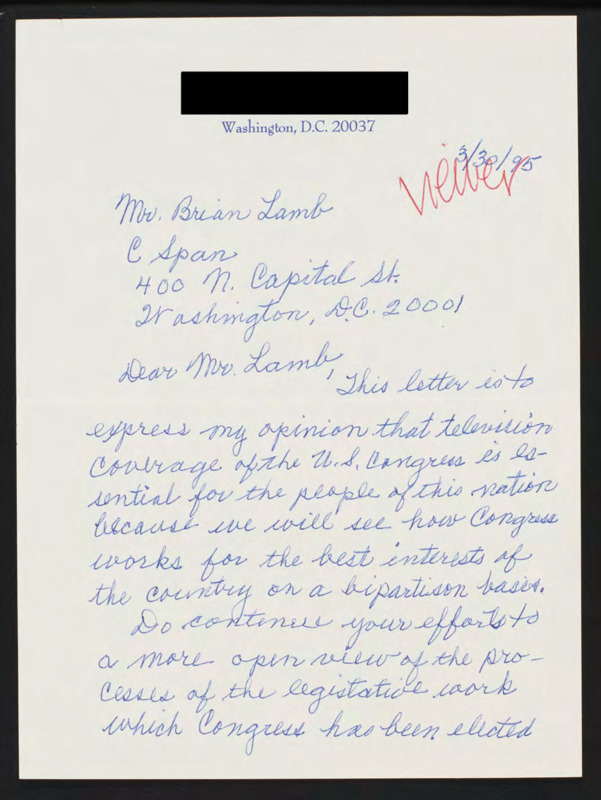 Washington, D.C. 20037
3/30/95
viewer
Mr. Brian Lamb
C Span
400 N. Capital St.
Washington, D.C. 20001
Dear Mr. Lamb,
This letter is to
express my opinion that television
coverage of the U.S. Congress is es-
sential for the people of this nation
because we will see how Congress
works for the best interests of
the country on a bipartison basis.
Do continue your efforts to
a more open view of the pro-
cesses of the legistative work
which Congress has been elected